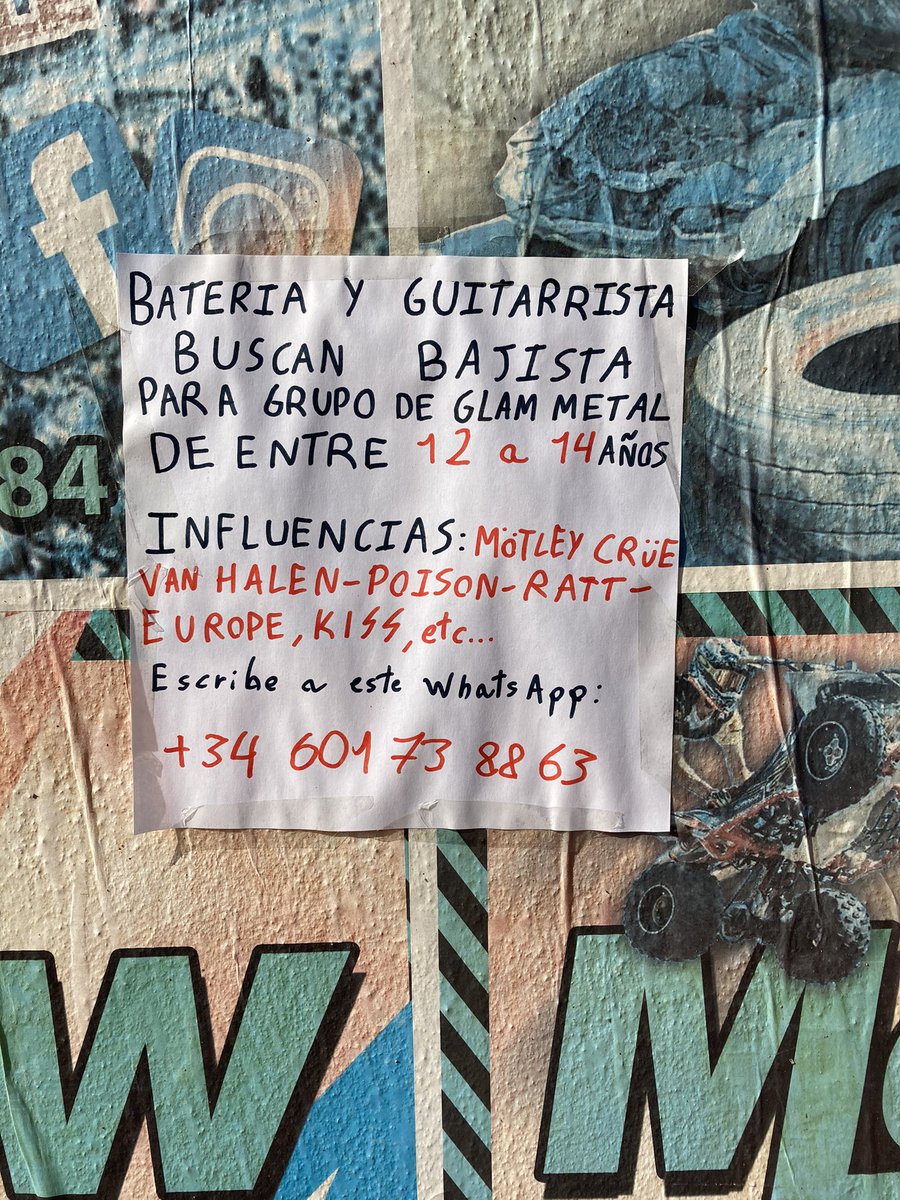 BATERIA Y GUITARRISTA
BUSCAN BAJISTA
PARA GRUPO DE GLAM METAL
DE ENTRE 12 a 14 AÑOS
INFLUENCIAS: MÖTLEY CRÜE
VAN HALEN-POISON-RATT-
EUROPE, KISS, etc...
Escribe a este WhatsApp:
+34 601 73 88 63
84
W